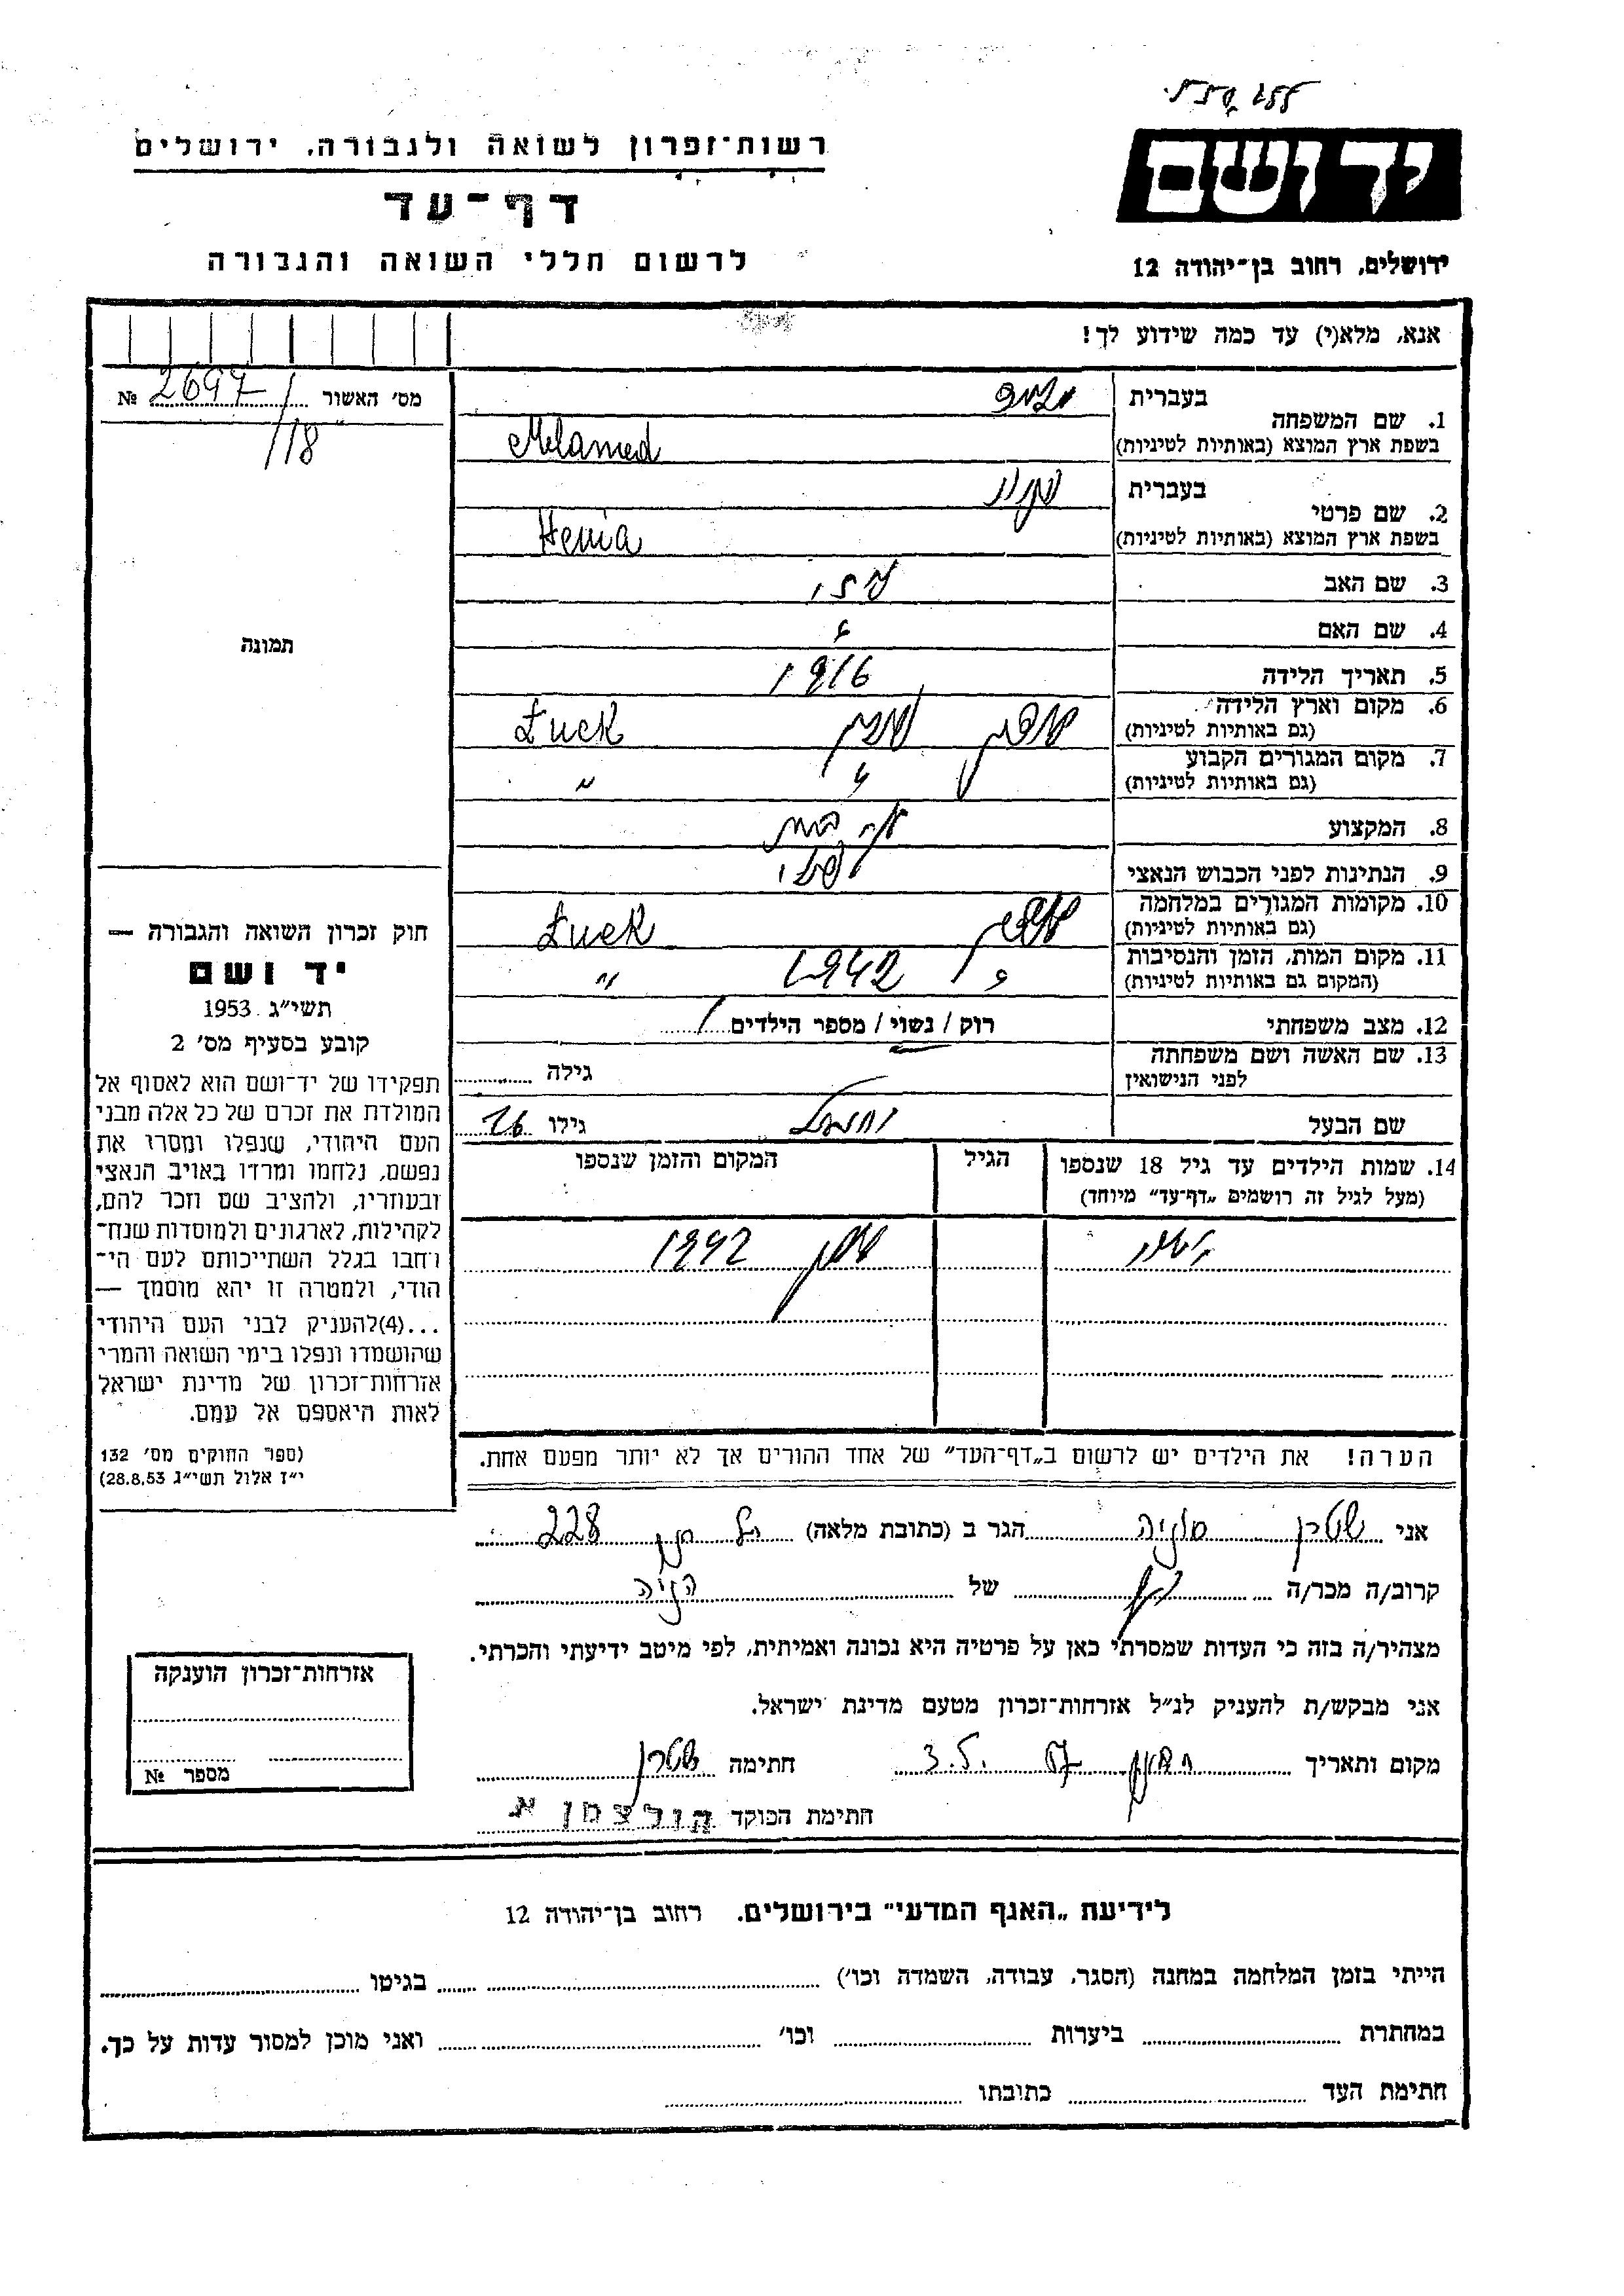 יד ושם
רשות־זכרון לשואה ולגבורה, ירושלים
דף־עד
לרשום חללי השואה והגבורה
ירושלים, רחוב בן־יהודה 12
אנא, מלא(י) עד כמה שידוע לך!
מס׳ האשור № 2697/118
בעברית
1. שם המשפחה
בשפת ארץ המוצא (באותיות לטיניות) Melamed
בעברית
2. שם פרטי
בשפת ארץ המוצא (באותיות לטיניות) Henia
3. שם האב
4. שם האם
תמונה
5. תאריך הלידה 1916
6. מקום וארץ הלידה
(גם באותיות לטיניות) Łuck
7. מקום המגורים הקבוע
(גם באותיות לטיניות) "
8. המקצוע
9. הנתינות לפני הכבוש הנאצי
10. מקומות המגורים במלחמה
(גם באותיות לטיניות) Łuck
11. מקום המות, הזמן והנסיבות
(המקום גם באותיות לטיניות) 1942 "
12. מצב משפחתי רוק / נשוי / מספר הילדים 1
13. שם האשה ושם משפחתה
לפני הנישואין גילה
שם הבעל גילו
14. שמות הילדים עד גיל 18 שנספו
(מעל לגיל זה רושמים „דף־עד״ מיוחד)
הגיל
המקום והזמן שנספו
1942
הערה! את הילדים יש לרשום ב„דף־העד״ של אחד ההורים אך לא יותר מפעם אחת.
חוק זכרון השואה והגבורה —
יד ושם
תשי״ג 1953
קובע בסעיף מס׳ 2
תפקידו של יד־ושם הוא לאסוף אל
המולדת את זכרם של כל אלה מבני
העם היהודי, שנפלו ומסרו את
נפשם, נלחמו ומרדו באויב הנאצי
ובעוזריו, ולהציב שם וזכר להם,
לקהילות, לארגונים ולמוסדות שנח־
רחבו בגלל השתייכותם לעם הי־
הודי, ולמטרה זו יהא מוסמך —
...(4)להעניק לבני העם היהודי
שהושמדו ונפלו בימי השואה והמרי
אזרחות־זכרון של מדינת ישראל
לאות היאספם אל עמם.
(ספר החוקים מס׳ 132
י״ז אלול תשי״ג 28.8.53)
אני שטרן הגר ב (כתובת מלאה) 228
קרוב/ה מכר/ה של הניה
מצהיר/ה בזה כי העדות שמסרתי כאן על פרטיה היא נכונה ואמיתית, לפי מיטב ידיעתי והכרתי.
אני מבקש/ת להעניק לנ״ל אזרחות־זכרון מטעם מדינת ישראל.
מקום ותאריך חתימה שטרן
חתימת הפוקד הולצמן א
אזרחות־זכרון הוענקה
מספר №
לידיעת „האגף המדעי״ בירושלים. רחוב בן־יהודה 12
הייתי בזמן המלחמה במחנה (הסגר, עבודה, השמדה וכו׳) בגיטו
במחתרת ביערות וכו׳ ואני מוכן למסור עדות על כך.
חתימת העד כתובתו